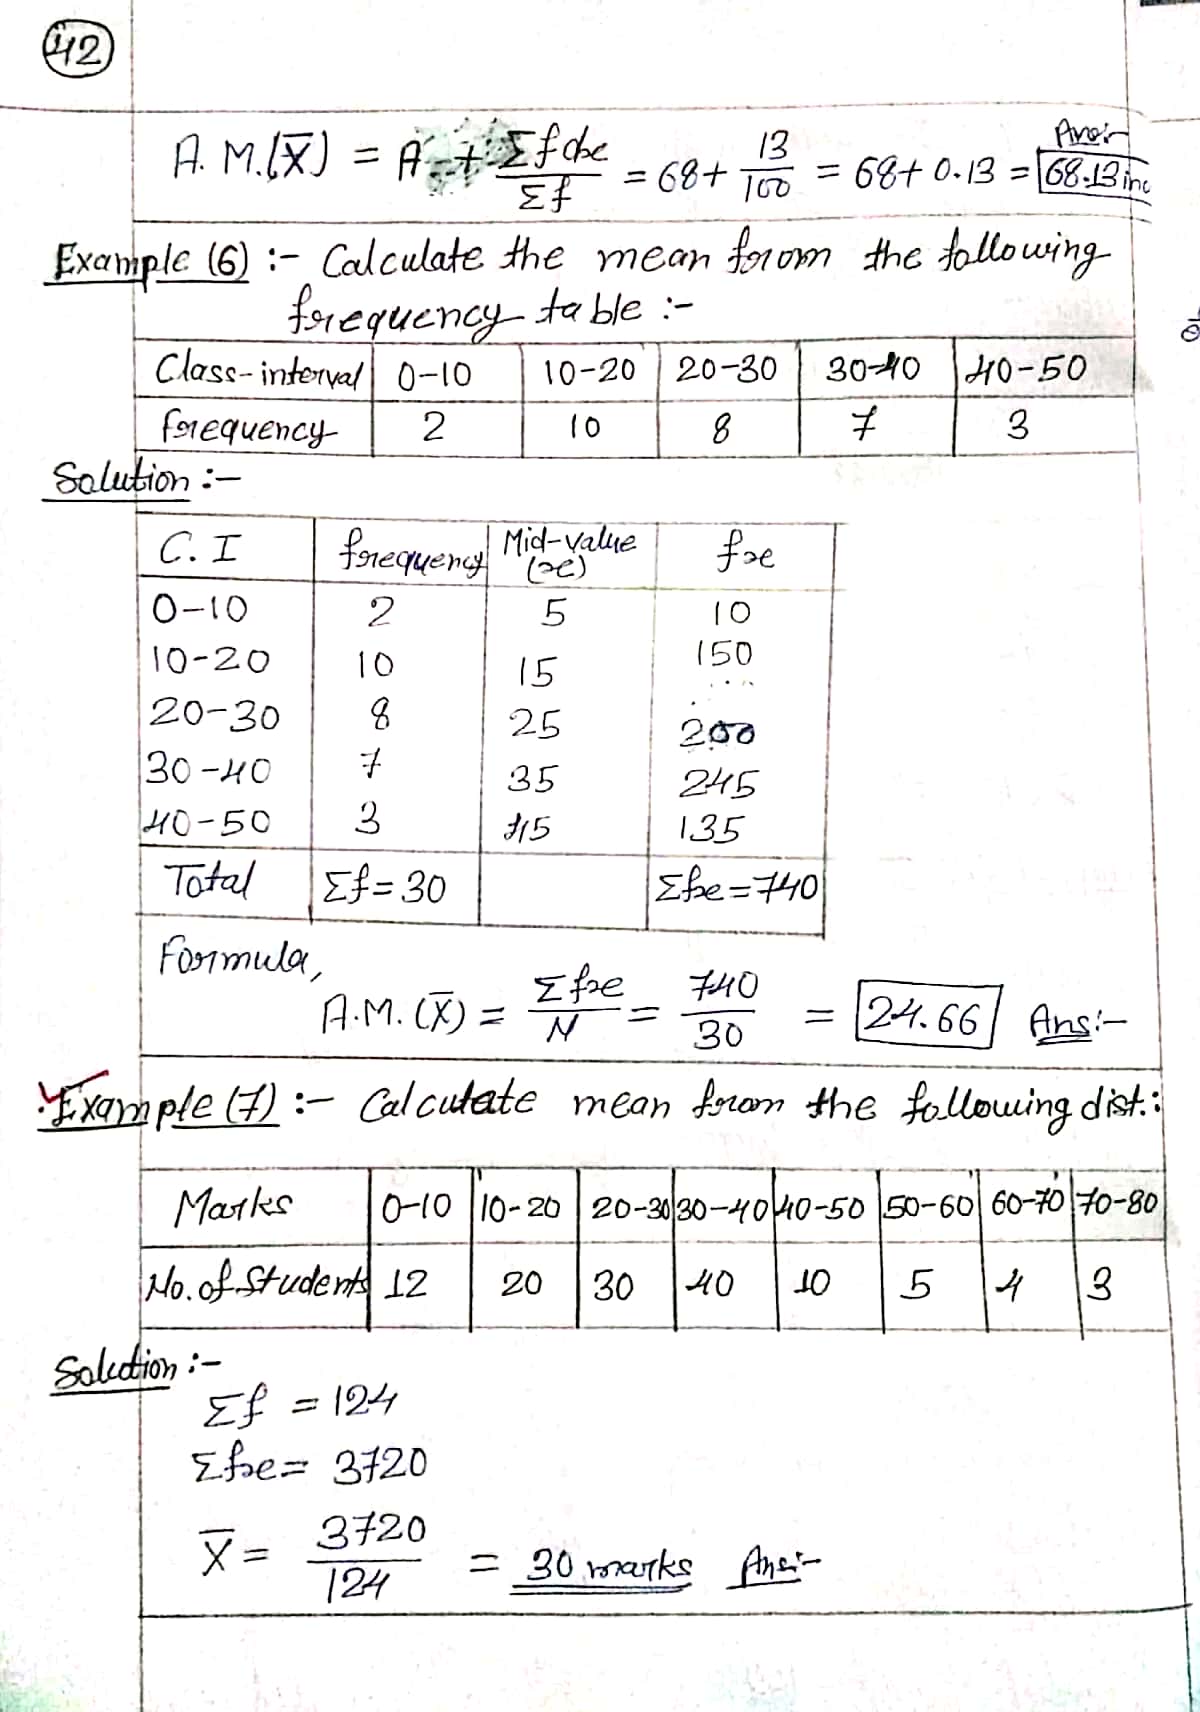 42
A.M.(X̅) = A + Σfdx/Σf = 68 + 13/100 = 68 + 0.13 = 68.13 inc Ans:-
Example (6) :- Calculate the mean from the following
frequency table :-
Class-interval 0-10 10-20 20-30 30-40 40-50
frequency 2 10 8 7 3
Solution :-
C.I frequency Mid-value (x) fx
0-10 2 5 10
10-20 10 15 150
20-30 8 25 200
30-40 7 35 245
40-50 3 45 135
Total Σf=30 Σfx=740
Formula,
A.M. (X̅) = Σfx/N = 740/30 = 24.66 Ans:-
Example (7) :- Calculate mean from the following dist.:
Marks 0-10 10-20 20-30 30-40 40-50 50-60 60-70 70-80
No. of Students 12 20 30 40 10 5 4 3
Solution :-
Σf = 124
Σfx = 3720
X̅ = 3720/124 = 30 marks Ans:-